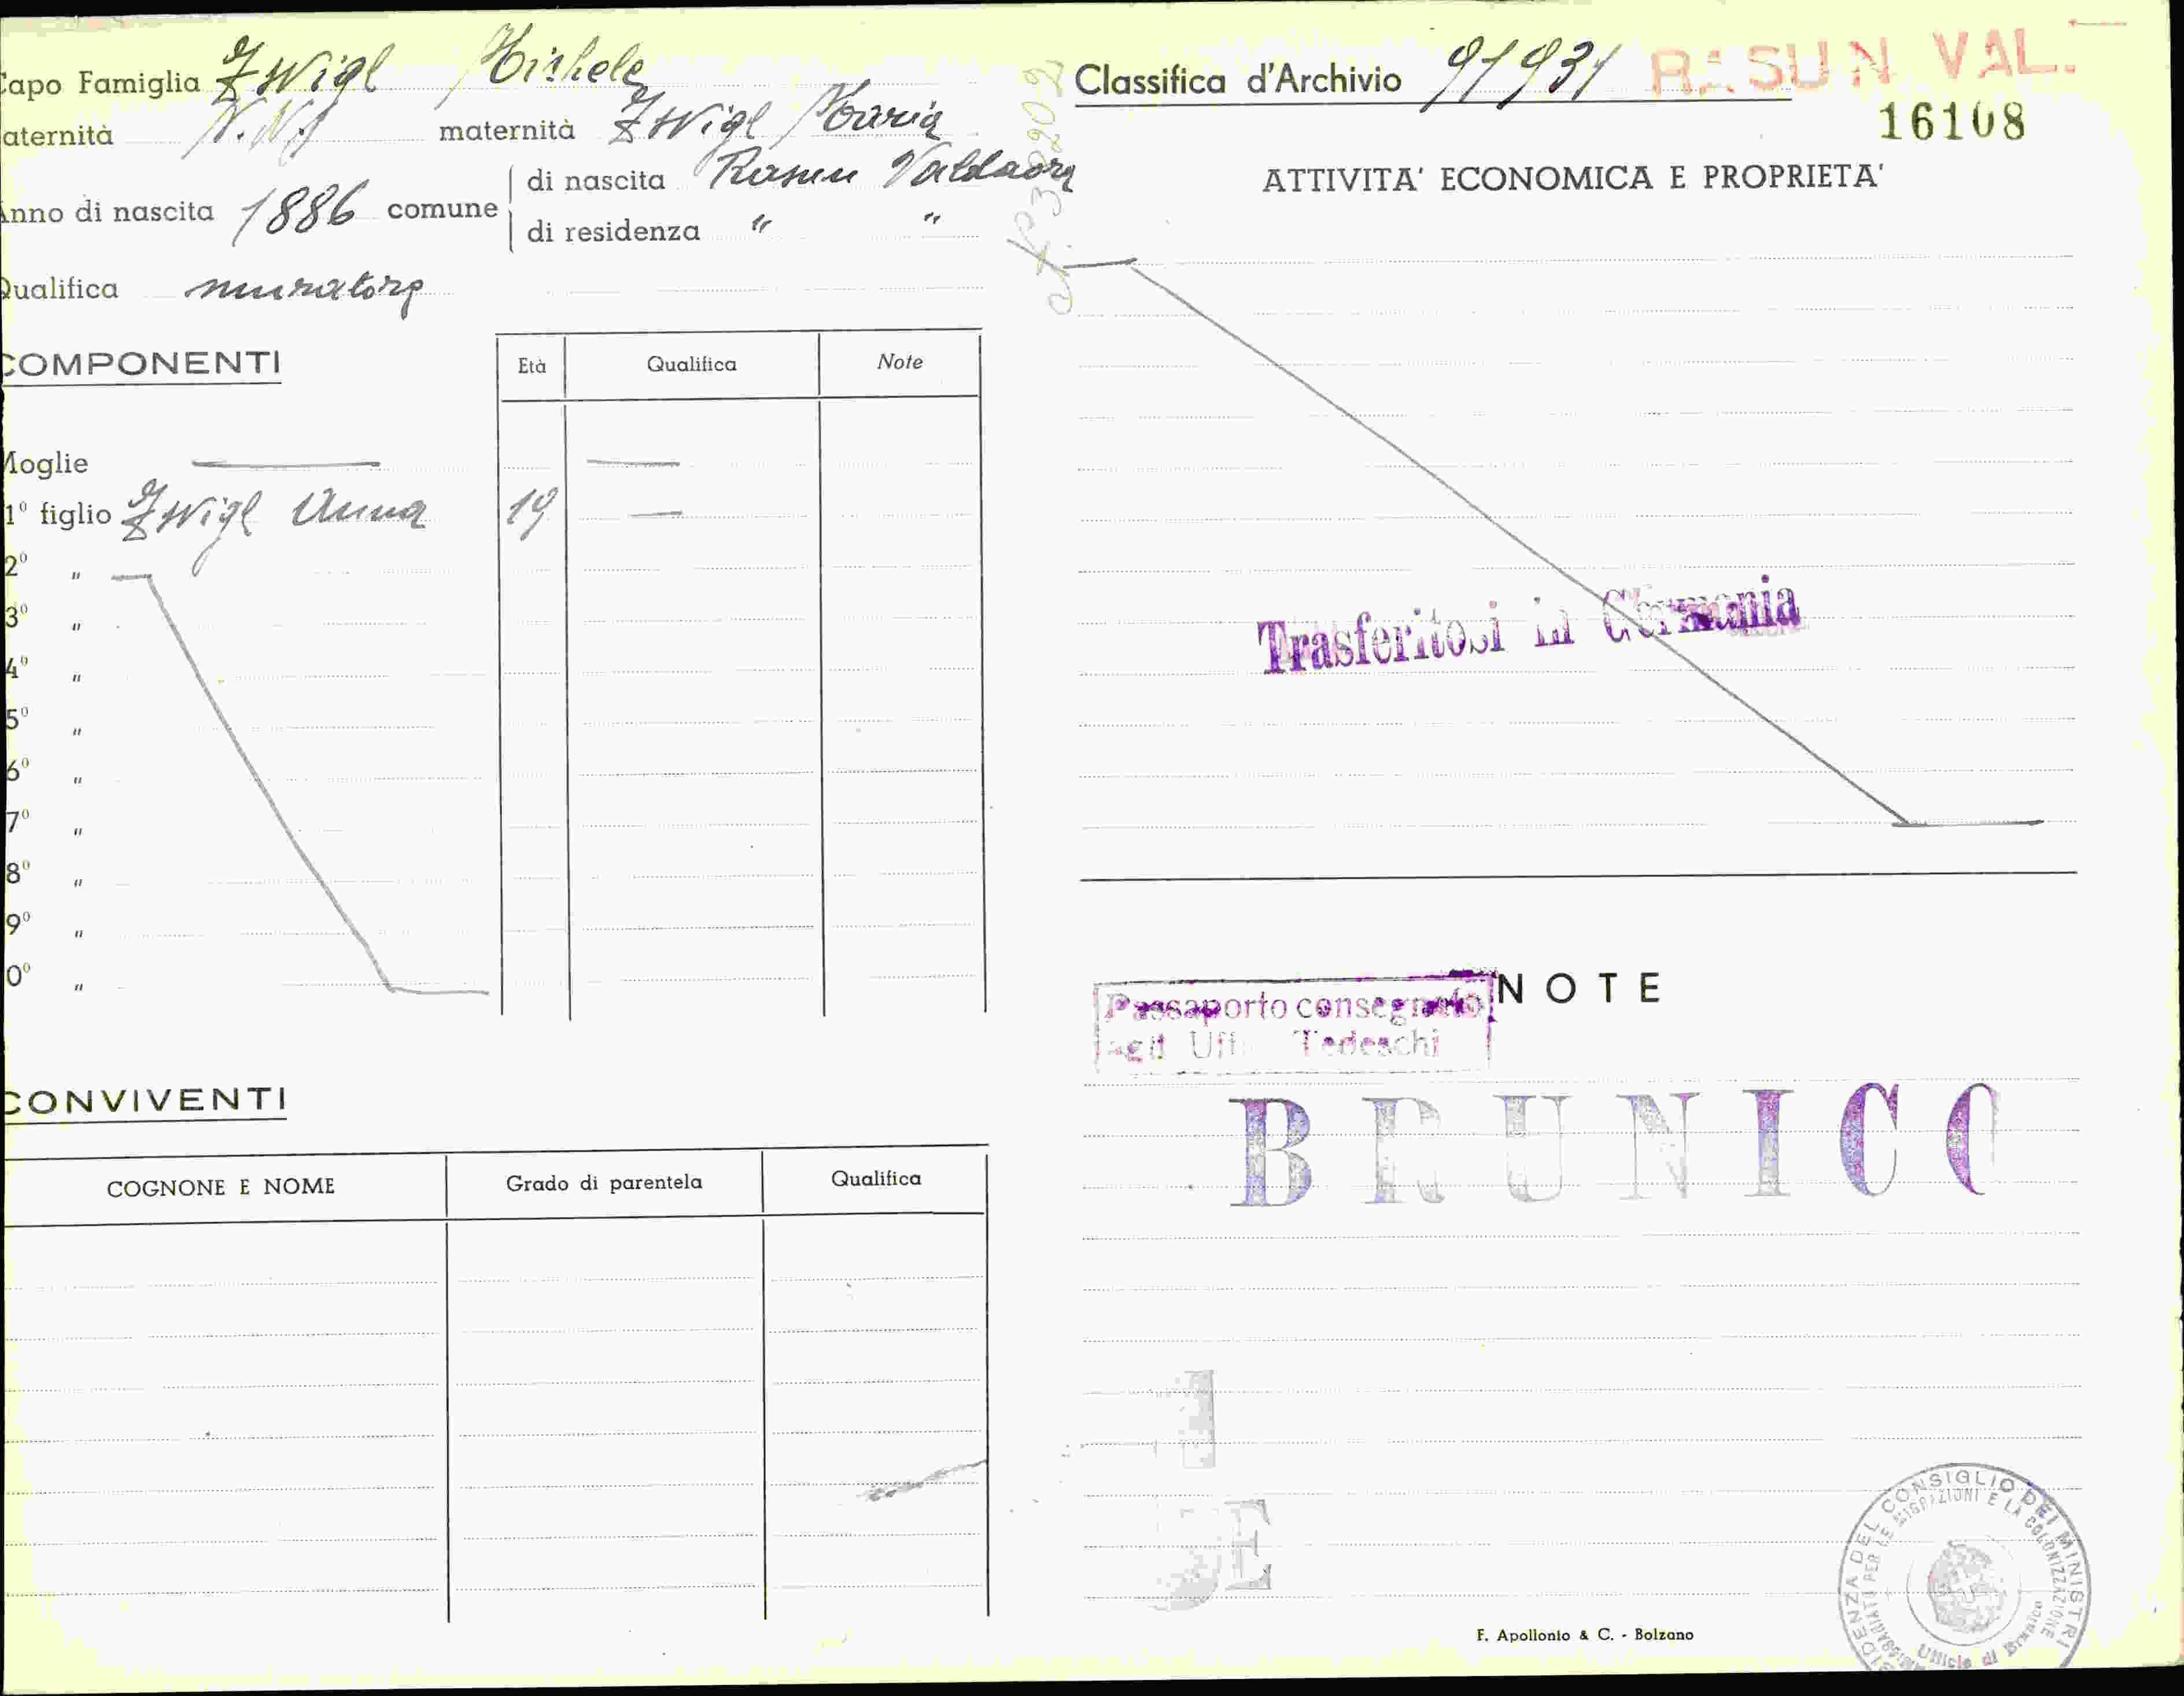 Capo Famiglia Zwigl Michele
aternità N.N. maternità Zwigl Maria
Anno di nascita 1886 comune di nascita Rasun Valdaora
di residenza " "
Qualifica muratore
COMPONENTI
Età Qualifica Note
Moglie
1º figlio Zwigl Anna 19
2º "
3º "
4º "
5º "
6º "
7º "
8º "
9º "
0º "
CONVIVENTI
COGNONE E NOME Grado di parentela Qualifica
Classifica d'Archivio 91931 RASUN VAL.
16108
ATTIVITA' ECONOMICA E PROPRIETA'
Trasferitosi in Germania
NOTE
Passaporto consegnato
agli Uff. Tedeschi
BRUNICO
E
F. Apollonio & C. - Bolzano
SIDENZA DEL CONSIGLIO DEI MINISTRI
PER LE MIGRAZIONI E LA COLONIZZAZIONE
Ufficio di Brunico